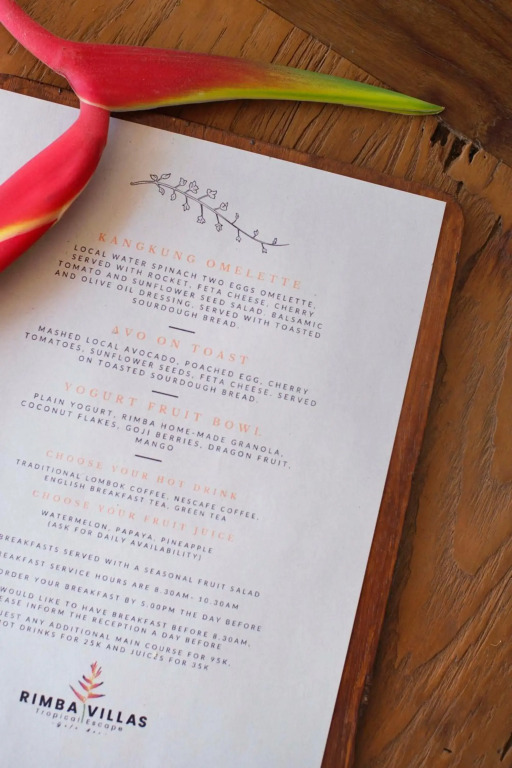 KANGKUNG OMELETTE
LOCAL WATER SPINACH TWO EGGS OMELETTE,
SERVED WITH ROCKET, FETA CHEESE, CHERRY
TOMATO AND SUNFLOWER SEED SALAD, BALSAMIC
AND OLIVE OIL DRESSING, SERVED WITH TOASTED
SOURDOUGH BREAD
AVO ON TOAST
MASHED LOCAL AVOCADO, POACHED EGG, CHERRY
TOMATOES, SUNFLOWER SEEDS, FETA CHEESE. SERVED
ON TOASTED SOURDOUGH BREAD.
YOGURT FRUIT BOWL
PLAIN YOGURT, RIMBA HOME-MADE GRANOLA,
COCONUT FLAKES, GOJI BERRIES, DRAGON FRUIT,
MANGO
CHOOSE YOUR HOT DRINK
TRADITIONAL LOMBOK COFFEE, NESCAFE COFFEE,
ENGLISH BREAKFAST TEA, GREEN TEA
CHOOSE YOUR FRUIT JUICE
WATERMELON, PAPAYA, PINEAPPLE
(ASK FOR DAILY AVAILABILITY)
BREAKFASTS SERVED WITH A SEASONAL FRUIT SALAD
REAKFAST SERVICE HOURS ARE 8.30AM- 10.30AM
ORDER YOUR BREAKFAST BY 5:00PM THE DAY BEFORE
WOULD LIKE TO HAVE BREAKFAST BEFORE 8.30AM,
EASE INFORM THE RECEPTION A DAY BEFORE
UEST ANY ADDITIONAL MAIN COURSE FOR 95K,
HOT DRINKS FOR 25K AND JUICES FOR 35K
RIMBA VILLAS
Tropical Escape